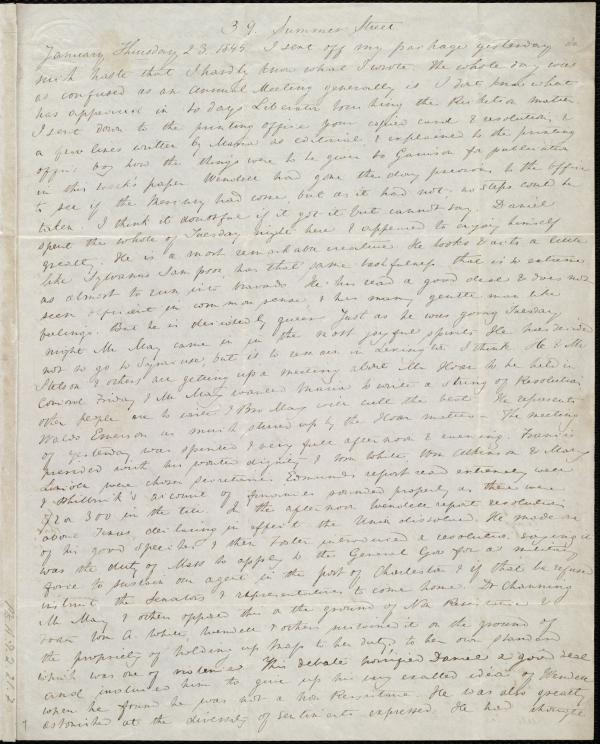 39. Summer Street
January Thursday 23. 1845. I sent off my package yesterday in
such haste that I hardly know what I wrote. The whole day was
as confused as an Annual Meeting generally is. I dont know what
has appeared in to days Liberator touching the matter
I sent down to the printing office your copied card & resolution, &
a few lines written by Maria as editorial & explained to the printing
office boy how the things were to be given to Garrison for publication
in this week's paper Wendell had gone the day previous to the office
to see if the Mercury had come, but as it had not no steps could be
taken. I think it doubtful if it got it but cannot say. Daniel
spent the whole of Tuesday night here & appeared to enjoy himself
greatly. He is a most remarkable creature He looks & acts a little
like Sylvanus has that same bashfulness that is so extreme
as almost to run into bravado He has read a good deal & does not
seem deficient in common sense & has many gentle man like
feelings. But he is decidedly queer. Just as he was going Tuesday
night Mr May came in in the most joyful spirits He has decided
not to go to Syracuse, but is to remain in Lexington I think. He & Mr
Stetson & others are getting up a meeting about Mr Hoar to be held in
Concord Friday & Mr May wanted Maria to write a string of Resolutions
other people are to write & Bro May will cull the best He represents
Waldo Emerson as much stirred up by the Hoar matter. The meeting
of yesterday was spirited & very full afternoon & evening. Francis
presided with his wonted dignity & Wm White, Wm Atkinson & Mary
Lincoln were chosen Secretaries Edmunds report read extremely well
& Philbrick's account of finances sounded properly as there were
72 or 300 in the till. In the afternoon Wendell report resolutions
about Texas, declaring in effect the Union dissolved. He made one
of his good speeches & then Foster introduced a resolution saying it
was the duty of Mass to apply to the General Gov for a military
force to sustain our agent in the port of Charleston & if that be refused
instruct the Senators & representatives to come home. Dr Channing
Mr May & others oppose this on the ground of Non Resistance &
Wm A White, Wendell & others sustained it on the ground of
the propriety of holding up Mass to her duty, to her own standard
which was one of violence This debate horrified Daniel a good deal
and induced him to give up his very exalted idea of Wendell
when he found he was not a Non Resistant. He was also greatly
astonished at the diversity of sentiments expressed. He had thought